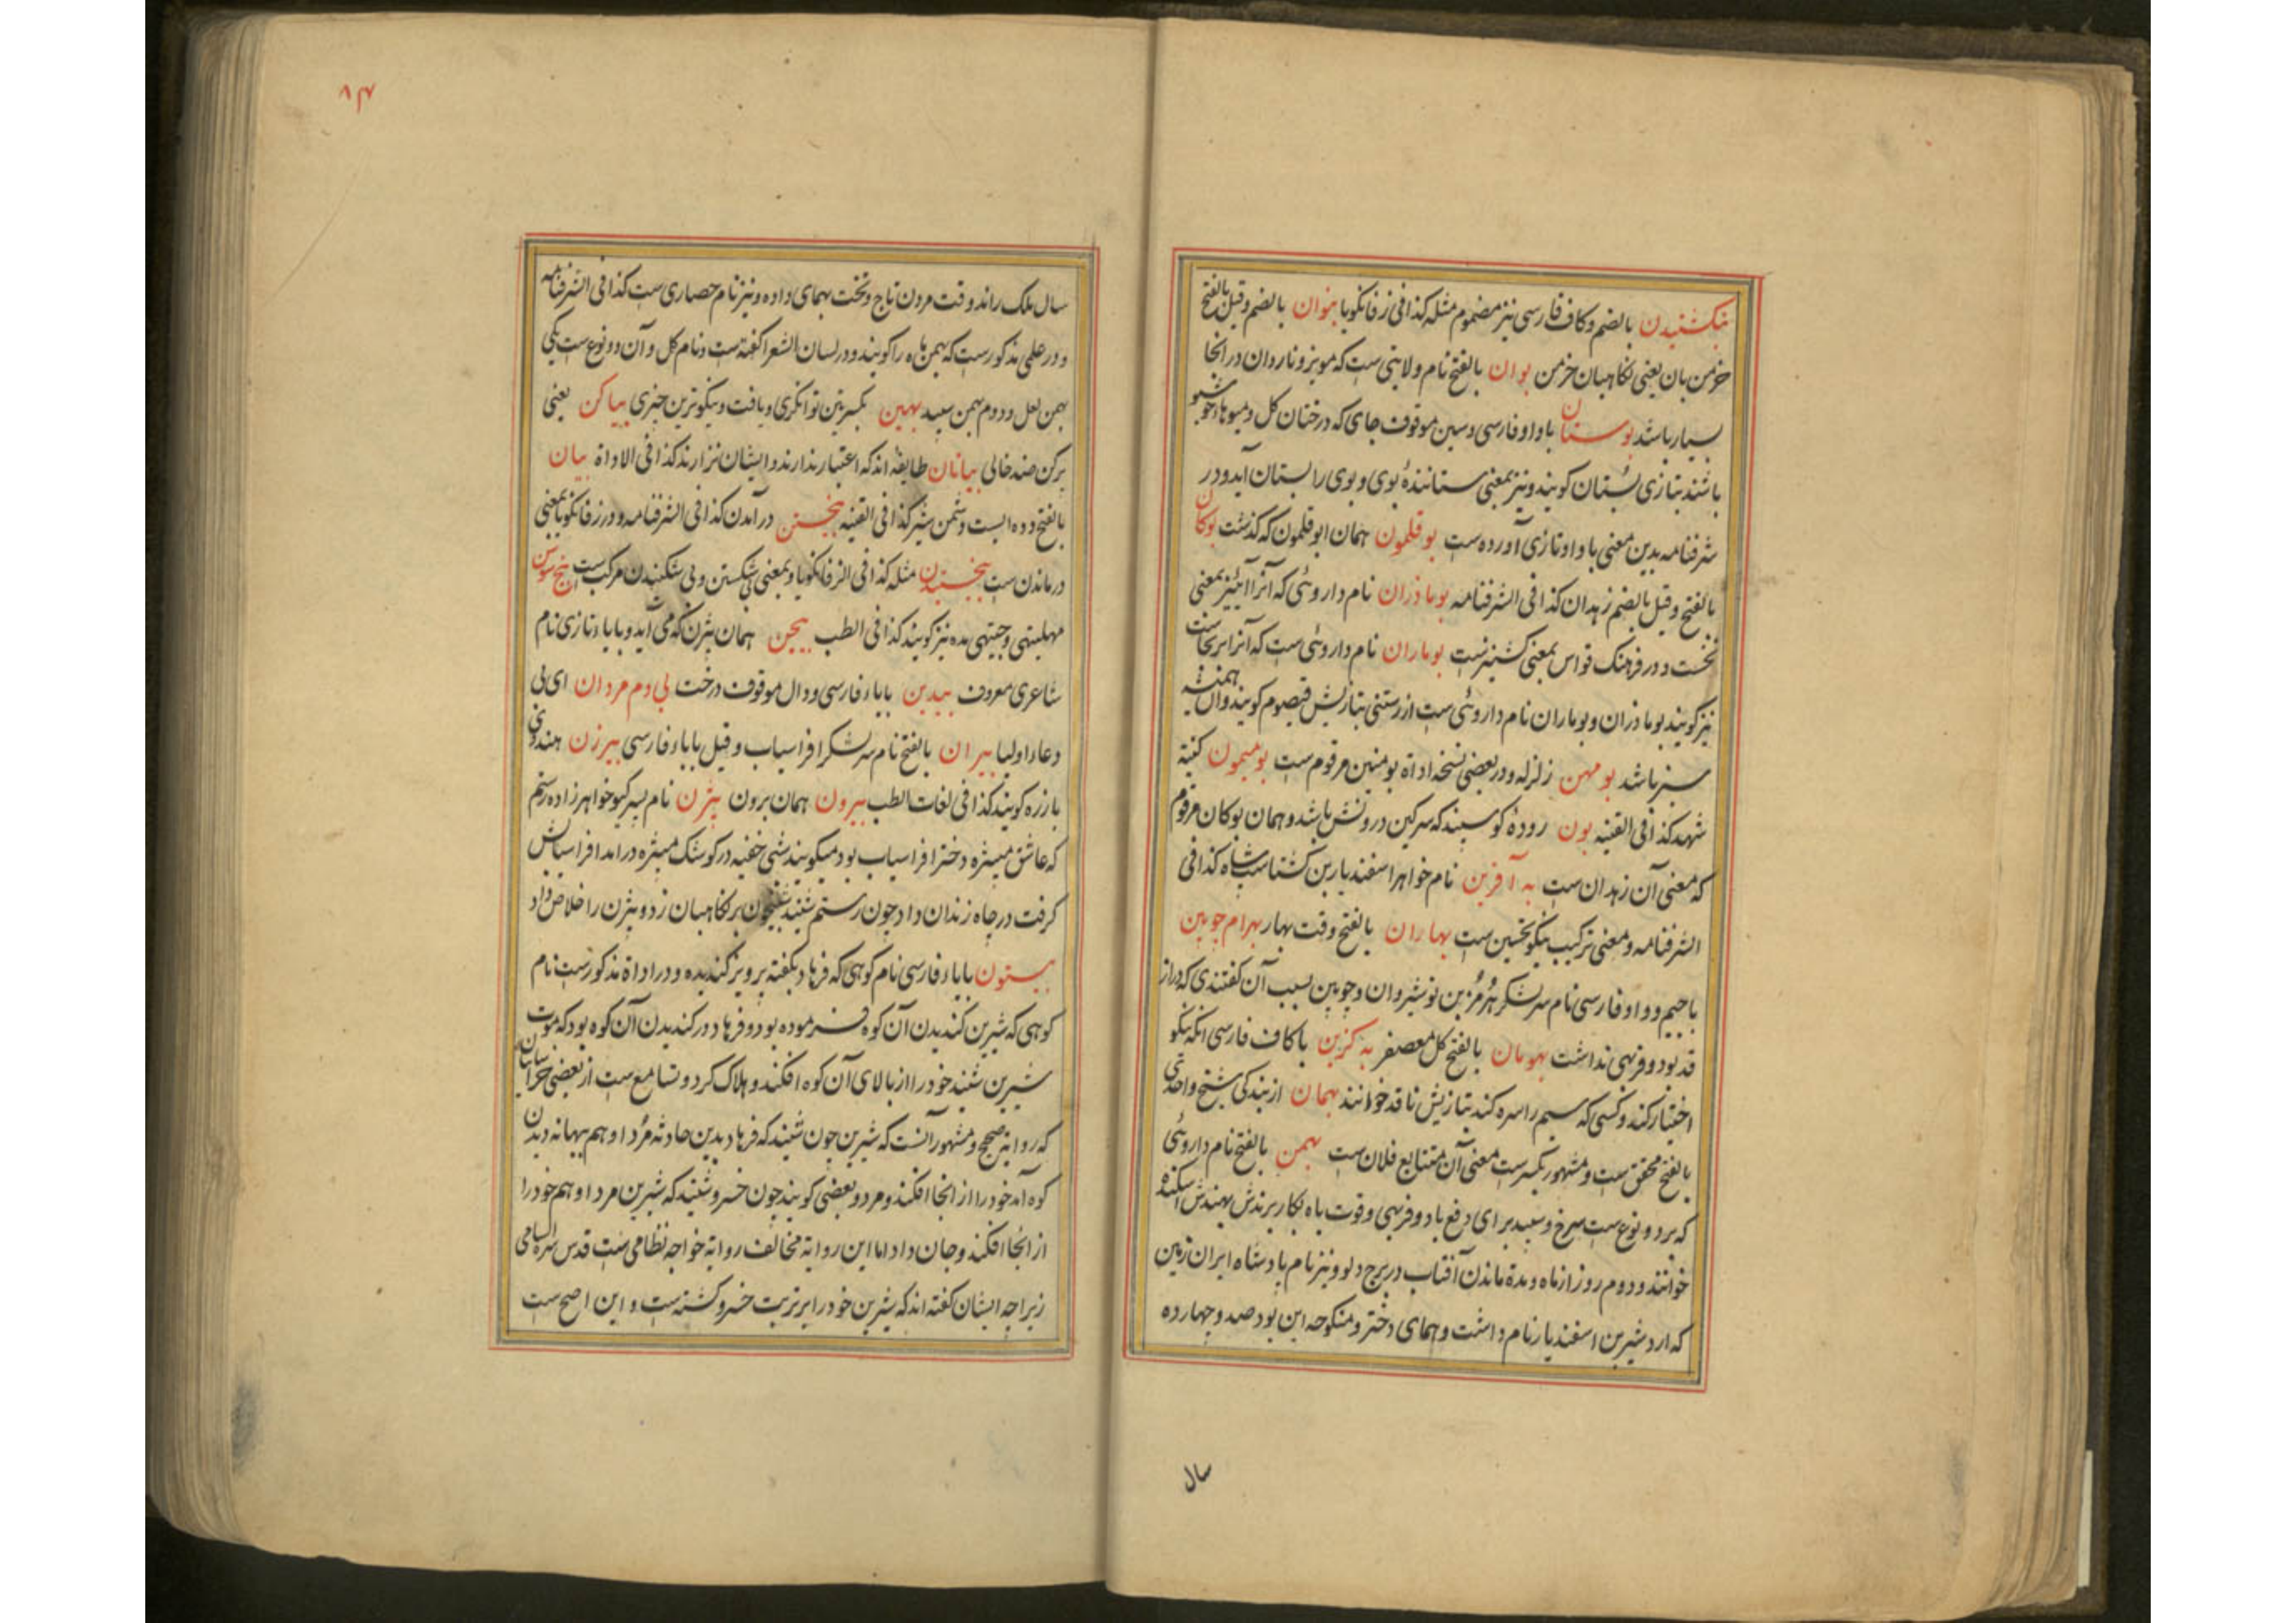 بنکشنیدن بالضم و کاف فارسی نیز مضموم مثله کذا فی زفانکویا بنوان بالضم و قیل بالفتح
خرمن بان یعنی نکاهبان خرمن بوان بالفتح نام ولایتی ست که مویز و ناردان در انجا
بسیار باشد بوستان باواو فارسی و سین موقوف جای که درختان کل و میوهاء خوشبو
باشند بتازی بُستان کویند و نیز بمعنی ستانندهٔ بوی و بوی را بستان آید و در
شرفنامه بدین معنی باواو تازی آورده ست بوقلمون همان ابوقلمون که کذشت بوکان
بالفتح و قیل بالضم زهدان کذا فی الشرفنامه بوماذران نام داروئی که آنرا نیز بمعنی
نخست و در فرهنک قواس بمعنی کشنیزست بوماران نام داروئی ست که آنرا
نیز کویند بوماذران و بوماران نام داروئی ست از رستنی بتازیش قیصوم کویند و آن همیشه
سبز باشد بومهن زلزله و در بعضی نسخه اداة بومنین مرقوم ست بومیمون کنیة
شهد کذا فی القنیه بون رودهٔ کوسپند که سرکین درونش باشد و همان بوکان مرقوم
که معنی آن زهدان ست به آفرین نام خواهر اسفندیار بن کشتاسب شاه کذا فی
الشرفنامه و معنی ترکیب نیکو تحسین ست بهاران بالفتح وقت بهار بهرام چوبین
باجیم و واو فارسی نام سر لشکر هُرمُز بن نوشیروان و چوبین بسبب آن کفتندی که دراز
قد بود و فربهی نداشت بهومان بالفتح کل معصفر به کزین باکاف فارسی انکه نیکو
اختیار کند و کسی که سیم را سره کند بتازیش ناقد خوانند بهمان از بندکی شیخ واحدی
بالفتح محقق ست و مشهور بکسرست معنی آن متتابع فلان ست بهمن بالفتح نام داروئی
که بر دو نوع ست سرخ و سپید برای دفع باد و فربهی و قوت باه بکار برندش بهندش اسکند
خوانند و دوم روز از ماه و مدة ماندن آفتاب در برج دلو و نیز نام پادشاه ایران زمین
که اردشیر بن اسفندیار نام داشت و همای دختر و منکوحه این بود صد و چهارده
سال
۸۴
سال ملک راند و وقت مردن تاج و تخت بهمای داده و نیز نام حصاری ست کذا فی الشرفنامه
و در علمی مذکورست که بهمن ماه را کویند و در لسان الشعرا کفته ست و نام کل و آن دو نوع ست یکی
بهمن لعل و دوم بهمن سپید بهین بکسرتین توانکری و یافت و نیکوترین چیزی بیاکن یعنی
پر کن ضد خالی بیانان طایفه اند که اعتبار ندارند و ایشان نزارند کذا فی الاداة بیان
بالفتح و ده ایست و دشمن شیر کذا فی القنیه بیخستن در آمدن کذا فی الشرفنامه و در زفانکویا بمعنی
درماندن ست بیخستیدن مثله کذا فی الزفانکویا و بمعنی بی شکستن و بی شکنیدن مرکب ست بیخ سوسن
مهلیتهی و جیتهی مده نیز کویند کذا فی الطب بیجن همان بیژن که می آید و بایاء تازی نام
شاعری معروف بیدبن بایاء فارسی و دال موقوف درخت بی دم مردان ای بی
دعاء اولیا بیران بالفتح نام سر لشکر افراسیاب و قیل بایاء فارسی بیرزن هندوی
بارزه کویند کذا فی لغات الطب بیرون همان برون بیژن نام پسر کیو خواهرزاده رستم
که عاشق منیژه دختر افراسیاب بود میکویند شبی خفیه در کوشک منیژه درامد افراسیابش
کرفت در چاه زندان داد چون رستم شنید شبیخون بر نکاهبان زد و بیژن را خلاص داد
بیستون بایاء فارسی نام کوهی که فرهاد بکفته پرویز کندیده و در اداة مذکورست نام
کوهی که شیرین کندیدن آن کوه فرموده بود و فرهاد در کندیدن آن کوه بود که موت
شیرین شنید خود را از بالای آن کوه افکند و هلاک کرد و تسامع ست از بعضی خراسانیان
که روایة صحیح و مشهور آنست که شیرین چون شنید که فرهاد بدین حادثه مُرد او هم ببهانه دیدن
کوه آمد خود را از انجا افکند و مرد و بعضی کویند چون خسرو شنید که شیرین مرد او هم خود را
از انجا افکند و جان داد اما این روایة مخالف روایة خواجه نظامی ست قدس سره السامی
زیرا چه ایشان کفته اند که شیرین خود را بر تربت خسرو کشته ست و این اصح ست